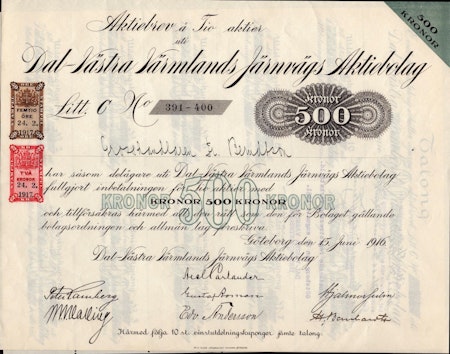 Aktiebrev à Tio aktier
uti
500
KRONOR
Dal-Västra Värmlands Järnvägs Aktiebolag
Litt. C No 391-400
Kronor
500
Kronor
FEMTIO
ÖRE
24. 2.
1917
TVÅ
KRONOR
24. 2.
1917
har såsom delägare uti Dal-Västra Värmlands Järnvägs Aktiebolag
fullgjort inbetalningen för tio aktier med
KRONOR 500 KRONOR
KRONOR 500 KRONOR
och tillförsäkras härmed all den rätt den för Bolaget gällande
bolagsordningen och allmän lag föreskriva
Göteborg den 15 juni 1916.
Dal-Västra Värmlands Järnvägs Aktiebolag
Axel Carlander
Hjalmar
Edv. Andersson
Härmed följa 10 st. vinstutdelningskuponger jämte talong.